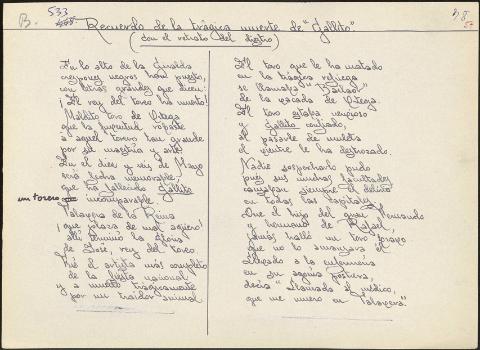 B.
533
58
Recuerdo de la trágica muerte de "Gallito".
(con el retrato del diestro)
En lo alto de la Giralda
crespones negros han puesto,
con letras grandes que dicen:
¡El rey del toreo ha muerto!
Maldito toro de Ortega
que la juventud robaste
a aquel torero tan grande
por su maestría y arte.
En el diez y seis de Mayo
será fecha memorable,
que ha fallecido Gallito
un torero incomparable.
Talavera de la Reina
¡que plaza de mal agüero!
allí terminó la gloria
de José, rey del toreo.
Fué el artista más completo
de la fiesta nacional
y a muerto trágicamente
por un traidor animal
El toro que le ha matado
en la trágica refriega
se llamaba "Bailaor"
de la vacada de Ortega.
El toro estaba receloso
y Gallito confiado,
al pasarle de muleta
el vientre le ha destrozado.
Nadie sospecharlo pudo
pues sus muchas facultades
causaban siempre el delirio
en todas las capitales
Que el hijo del gran Fernando
y hermano de Rafael,
jamás halló un toro bravo
que no lo amansara él
Llegado a la enfermería
en su agonía postrera,
decía "Llamada al médico,
que me muero en Talavera".